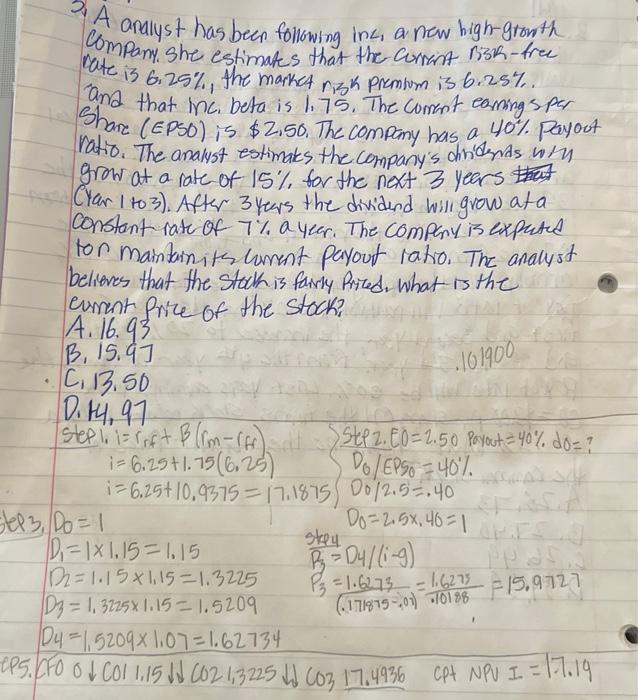 3. A analyst has been following Inc, a new high-growth
Company. She estimates that the current risk-free
rate is 6.25%, the market risk premium is 6.25%.
and that Inc. beta is 1.75. The current earnings per
Share (EPS0) is $2.50. The company has a 40% Payout
ratio. The analyst estimates the company's dividends will
grow at a rate of 15% for the next 3 years that
(Year 1 to 3). After 3 years the dividend will grow at a
constant rate of 7% a year. The company is expected
to maintain its current payout ratio. The analyst
believes that the Stock is fairly Priced. What is the
current Price of the stock?
A. 16.93
B. 15.97
.101900
C. 13.50
D. 14.97
Step 1. i = rrf + B(rm-rrf)
i = 6.25+1.75(6.25)
i = 6.25+10.9375 = 17.1875
Step 2. E0=2.50 Payout=40% do=?
D0/EPS0 = 40%
D0/2.5 = .40
D0 = 2.5x.40 = 1
Step 3. D0 = 1
D1 = 1x1.15 = 1.15
D2 = 1.15x1.15 = 1.3225
D3 = 1.3225x1.15 = 1.5209
D4 = 1.5209x1.07 = 1.62734
Step 4
P3 = D4/(i-g)
P3 = 1.6273/(.171875-.07) = 1.6273/.10188 = 15.9727
EP5. CF0 0 ↓ C01 1.15 ↓↓ C02 1.3225 ↓↓ C03 17.4936 CPt NPV I = 17.19